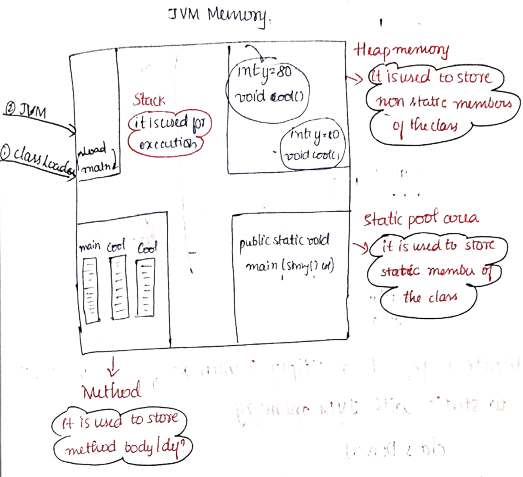 JVM Memory.
Heap memory
int y=80
void cool()
It is used to store
non static members
of the class
Stack
it is used for
execution
② JVM
① class Loader
Load
main
int y=10
void cool()
Static pool area
it is used to store
static member of
the class
main Cool Cool
public static void
main (String[]
Method
it is used to store
method body/